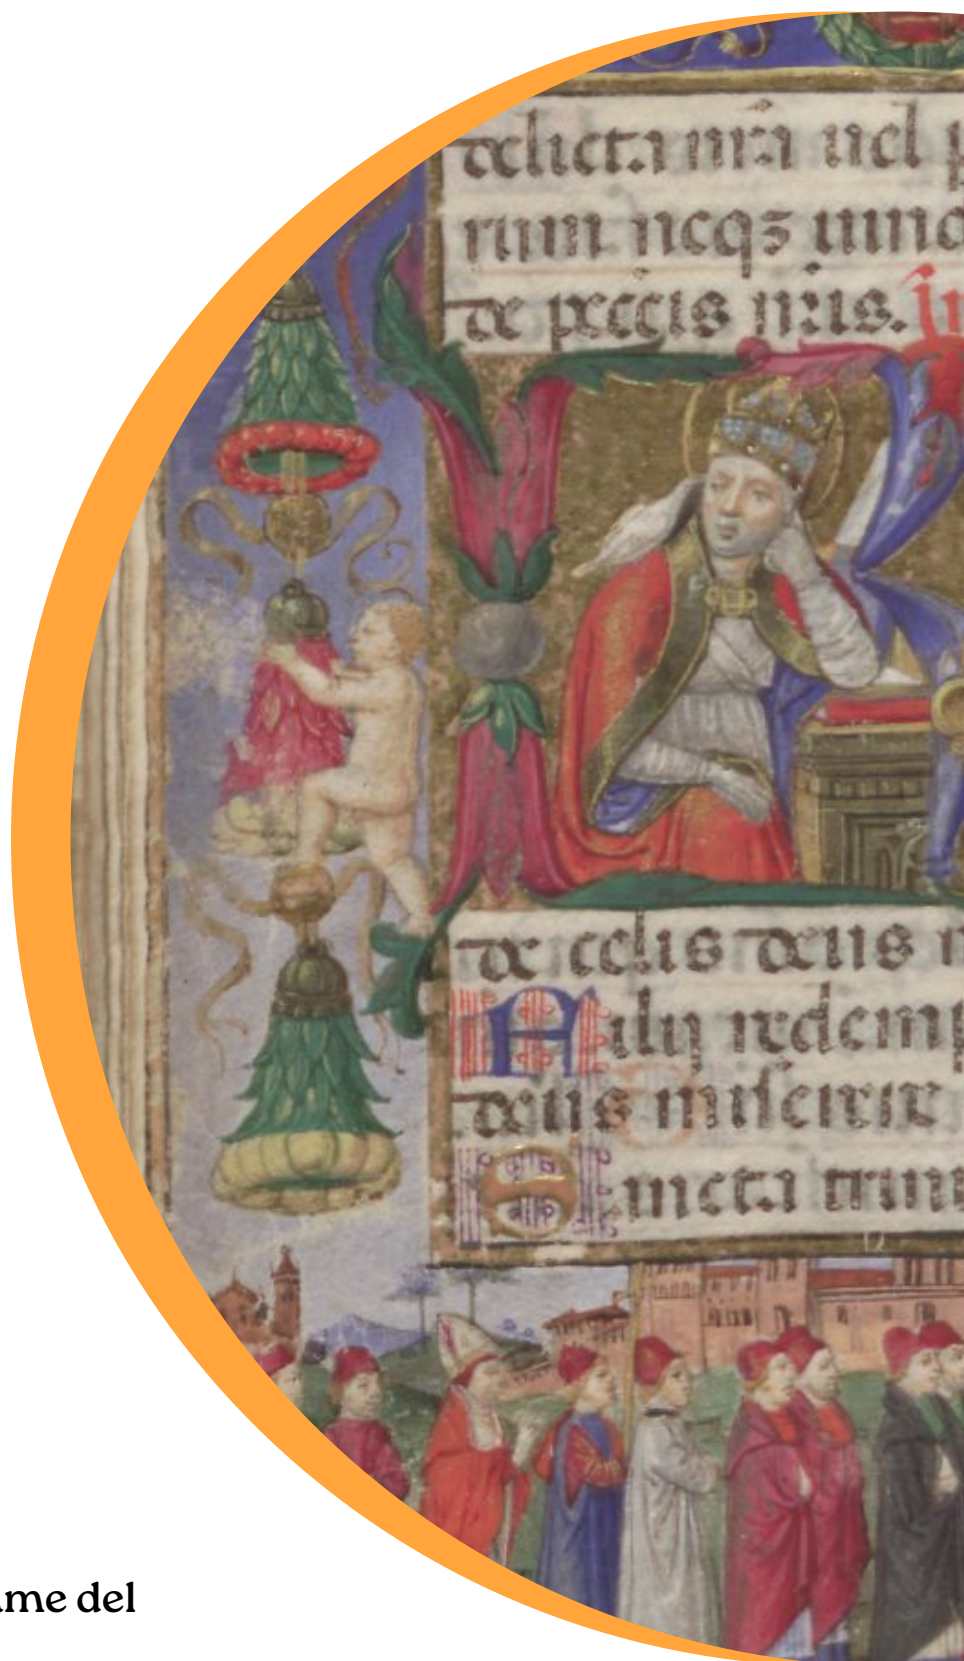 delicta nr̄a uel p
rum neqʒ uind
de peccīs nr̄is. in
de celis deus m
Filij redemp
deus miserere
Sancta trini
ame del